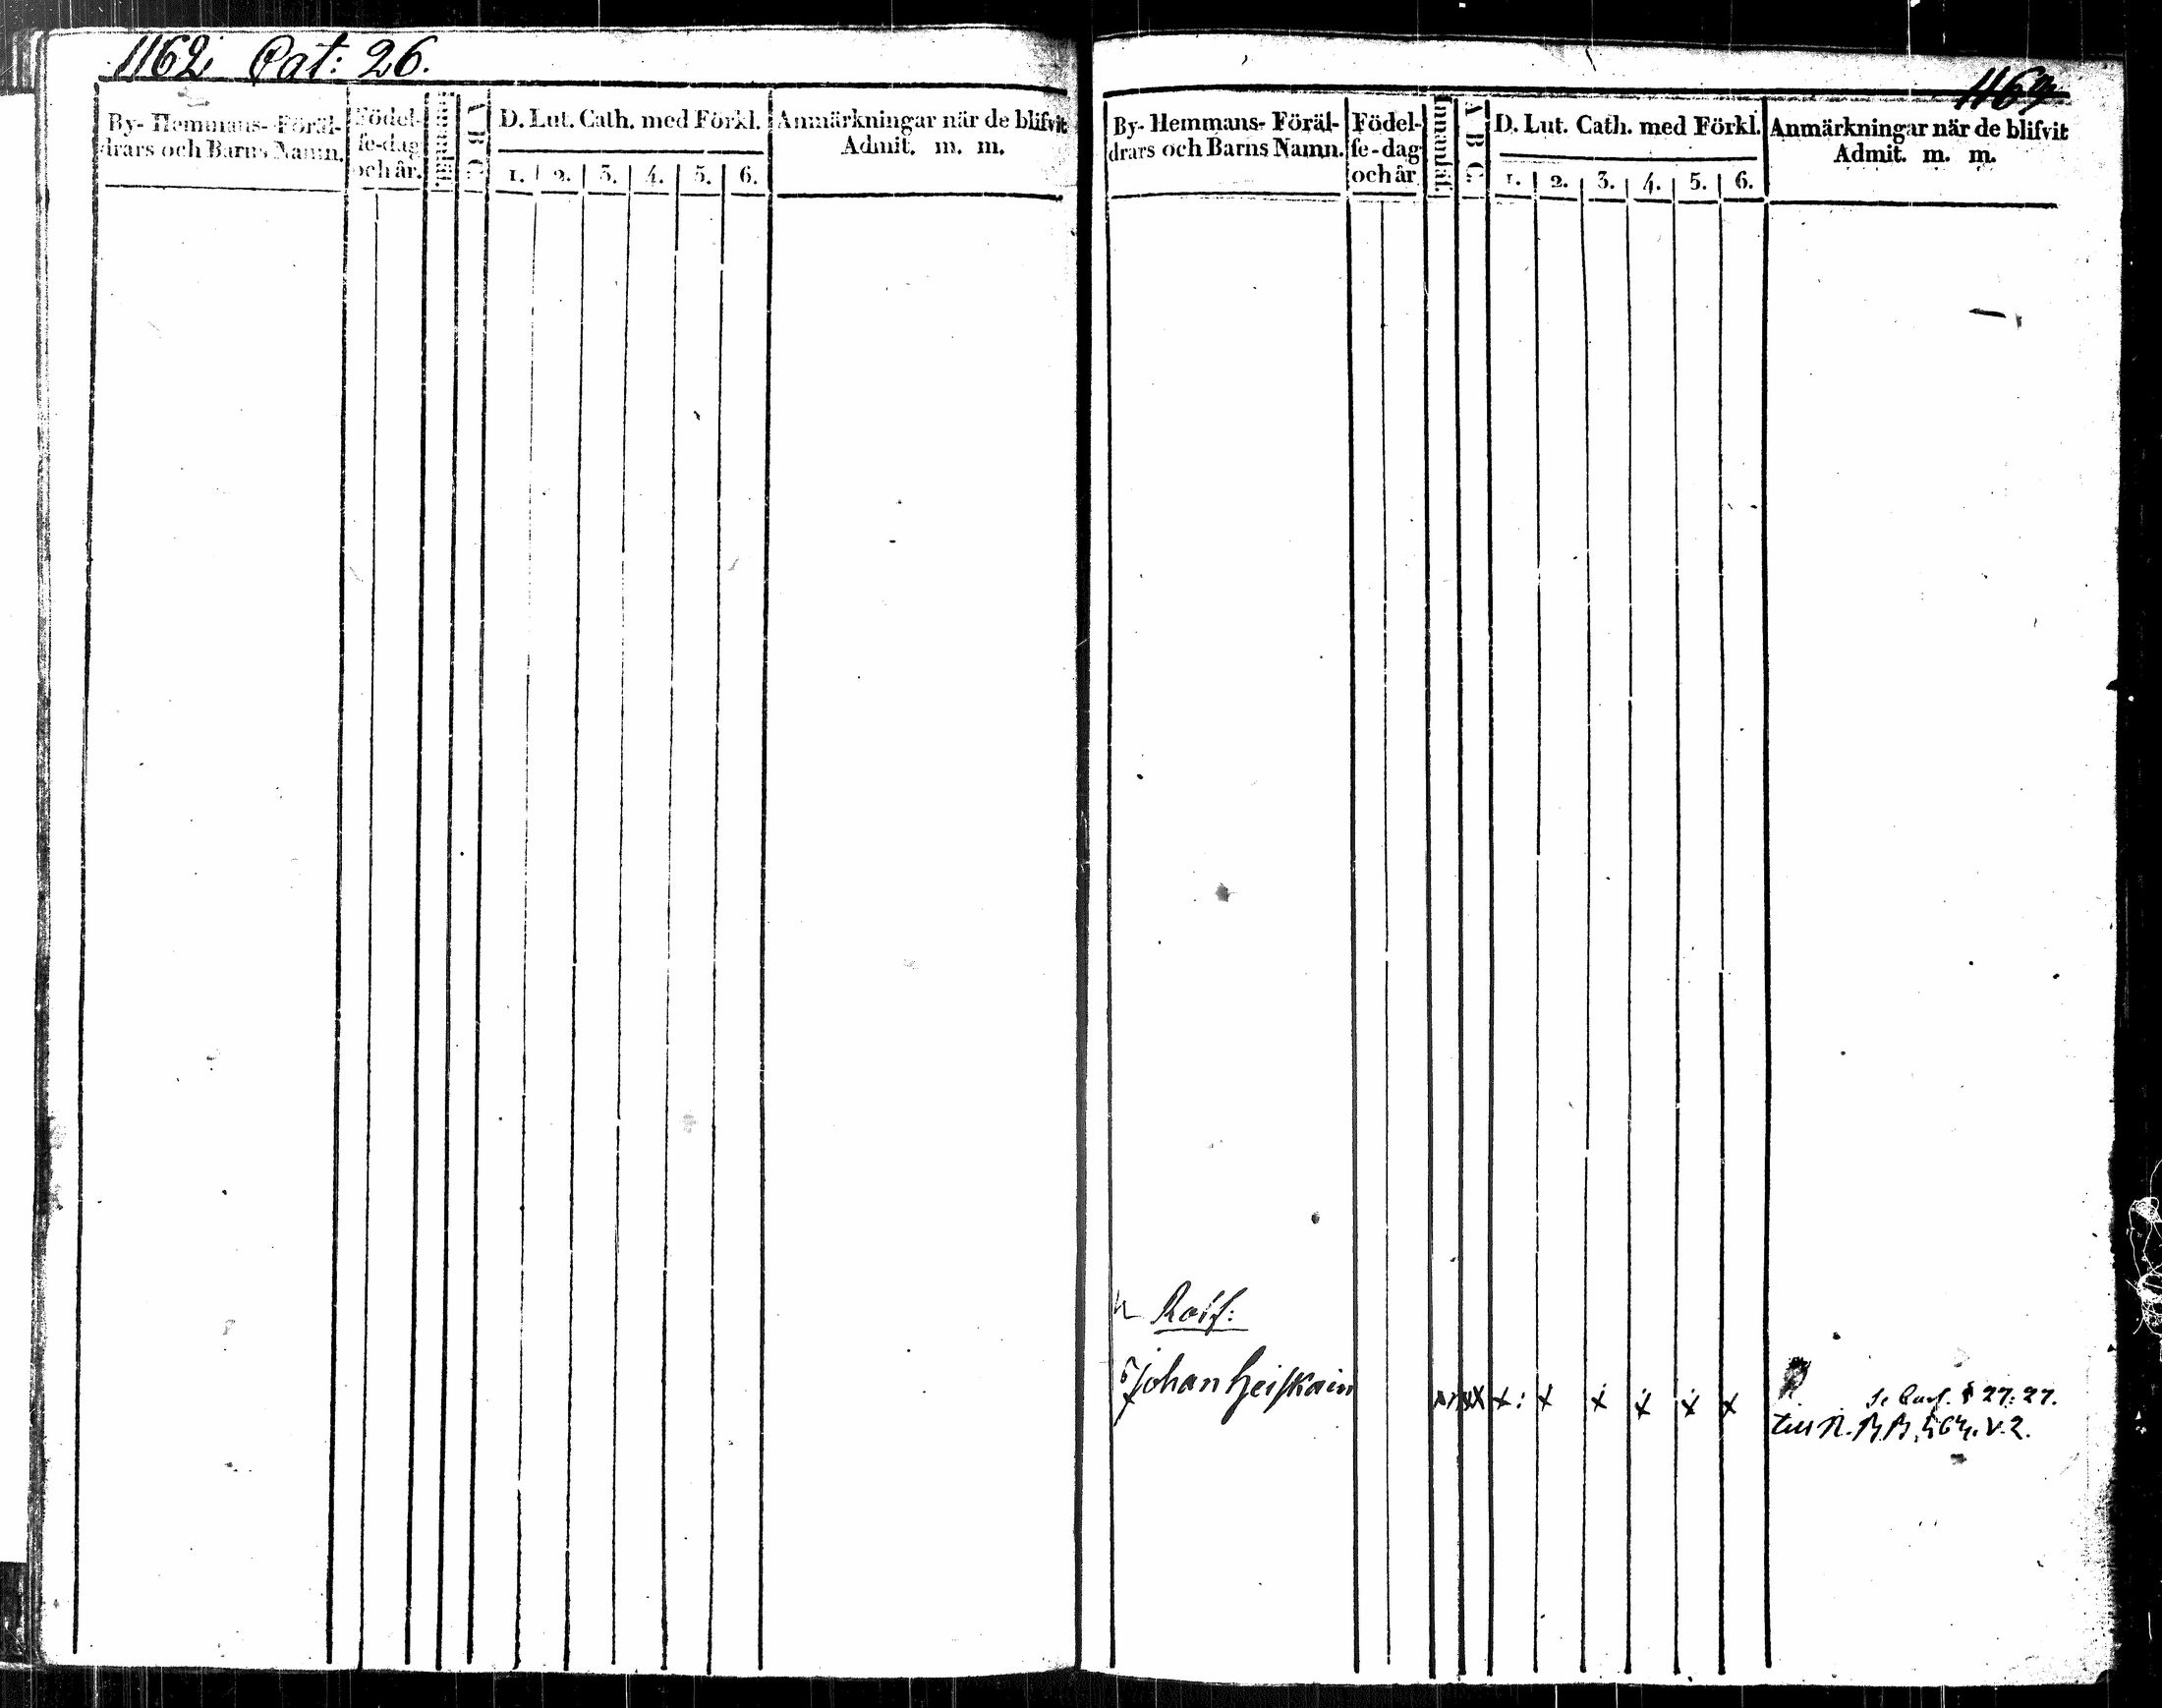 1162 Cat: 26.
By- Hemmans- Föräl-
drars och Barns Namn.
Födel-
se-dag
och år.
Innanläs.
A B C.
D. Lut. Cath. med Förkl.
1. 2. 3. 4. 5. 6.
Anmärkningar när de blifvit
Admit. m. m.
1169
By- Hemmans- Föräl-
drars och Barns Namn.
Födel-
se-dag
och år
Innanläs.
A B C.
D. Lut. Cath. med Förkl.
1. 2. 3. 4. 5. 6.
Anmärkningar när de blifvit
Admit. m. m.
Johan Heiskain x : x x x x x
27: 27.
till N. v. 2.